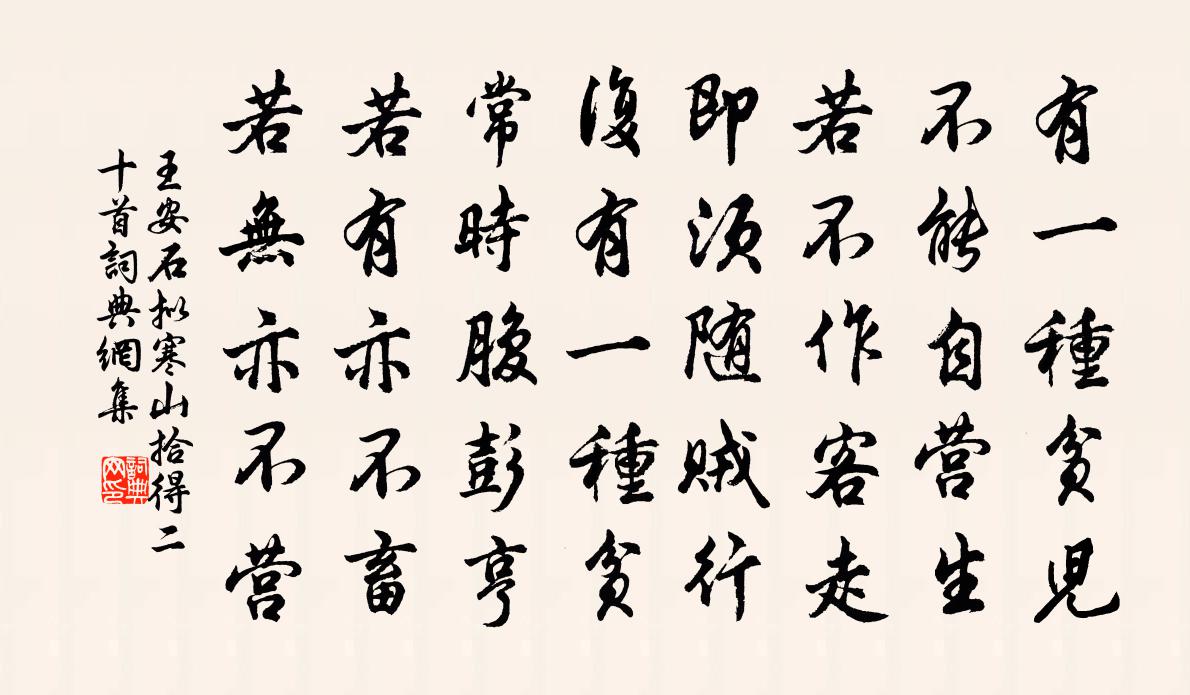 有一種貧児
不能自营生
若不作客走
即须随贼行
復有一種貧
常時腹彭亨
若有亦不畜
若無亦不营
王安石拟寒山拾得二
十首詞典網集
詞典
网印